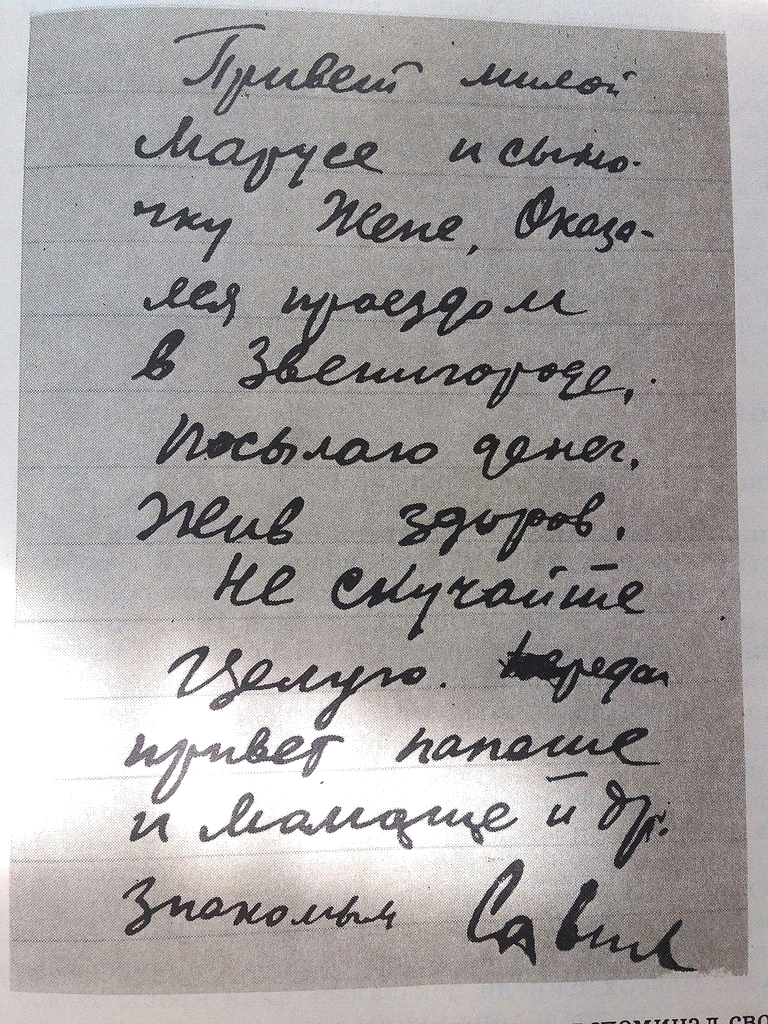 Привет милой
Марусе и сыно-
чку Жене, Оказа-
лся проездом
в Звенигороде,
посылаю денег.
Жив здоров.
Не скучайте
Целую. передай
привет папаше
и мамаше и др.
знакомым Савин
вспоминал сво